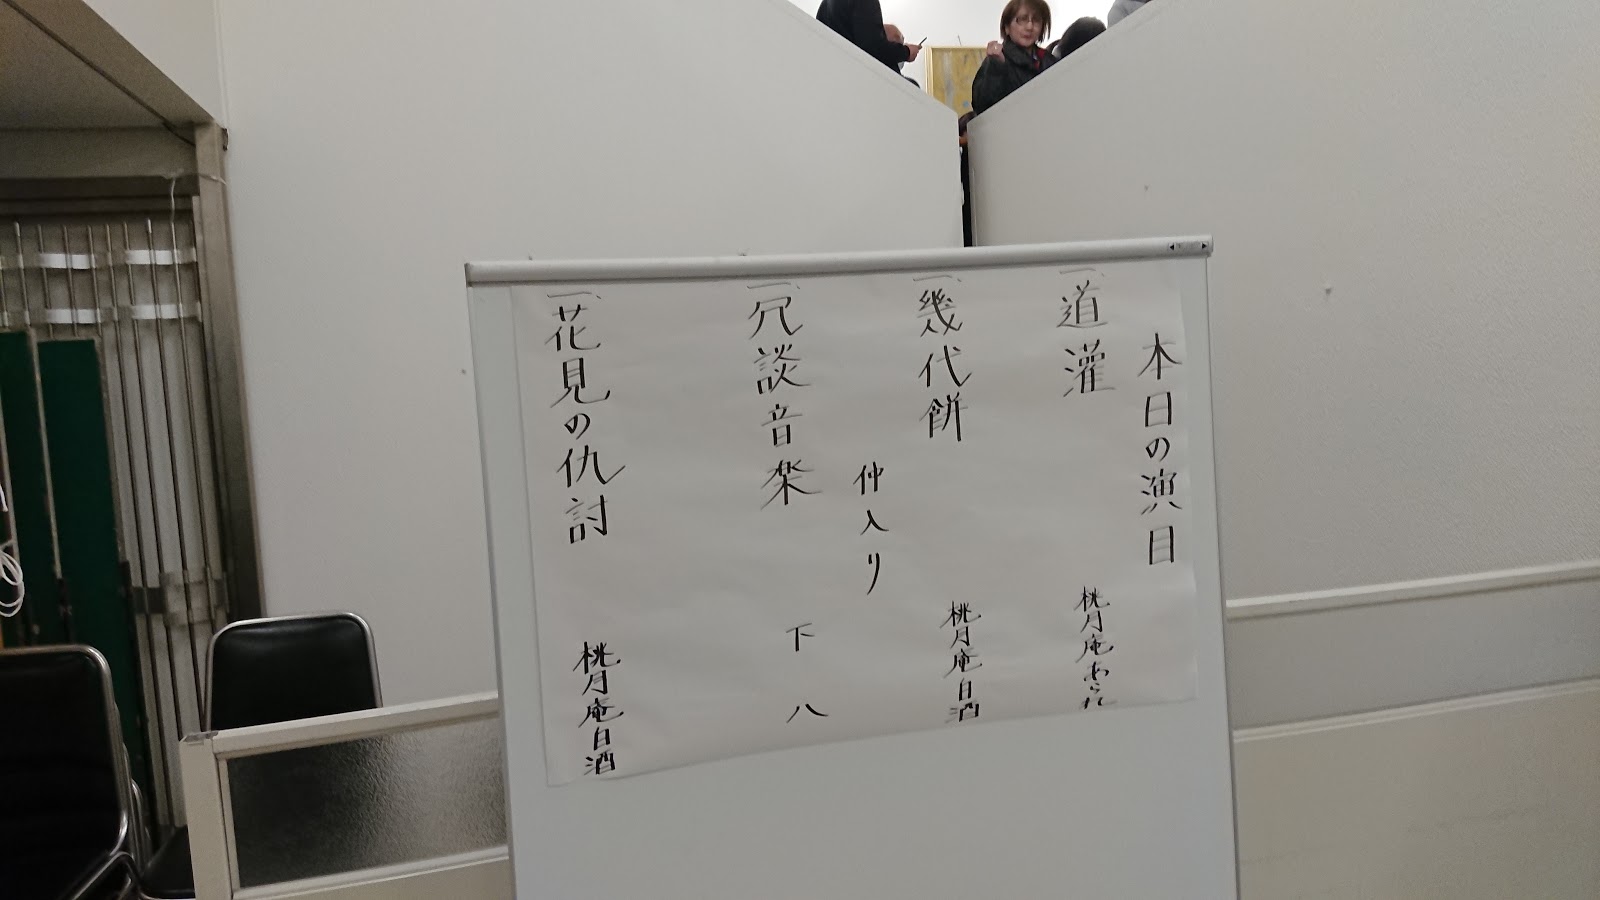 本日の演目
一、道灌 桃月庵あられ
一、幾代餅 桃月庵白酒
仲入り
一、冗談音楽 下八
一、花見の仇討 桃月庵白酒